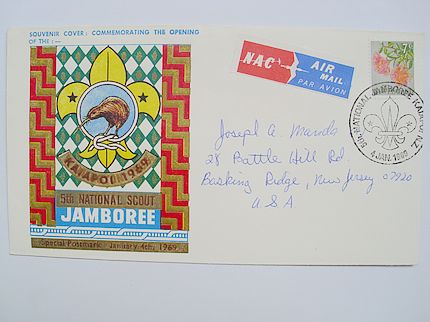 SOUVENIR COVER: COMMEMORATING THE OPENING
OF THE:—
NAC
AIR
MAIL
PAR AVION
7c
5th NATIONAL JAMBOREE KAIAPOI N.Z.
4 JAN. 1969
KAIAPOI 1969
5th NATIONAL SCOUT
JAMBOREE
Special Postmark January 4th, 1969
Joseph A.
28 Battle Hill Rd
Basking Ridge, New Jersey 07920
USA